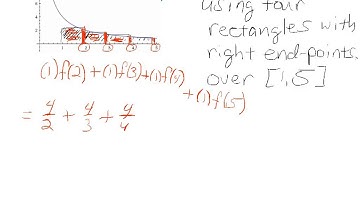 using four
rectangles with
right end-points.
over [1,5]
(1)f(2)+(1)f(3)+(1)f(4)
+(1)f(5)
= 4/2 + 4/3 + 4/4